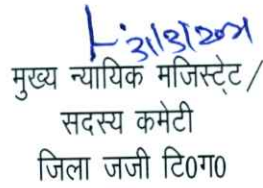 मुख्य न्यायिक मजिस्ट्रेट /
सदस्य कमेटी
जिला जजी टि0ग0